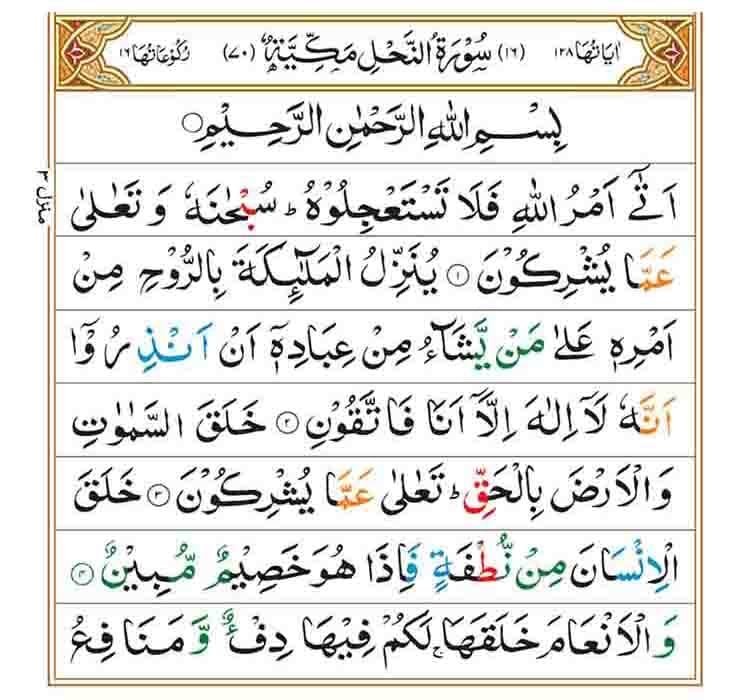 اٰيَاتُهَا ١٢٨ (١٦) سُوْرَةُ النَّحْلِ مَكِّيَّةٌ (٧٠) رُكُوْعَاتُهَا ١٦
بِسْمِ اللّٰهِ الرَّحْمٰنِ الرَّحِيْمِ ۝
منزل ٣
اَتٰۤى اَمْرُ اللّٰهِ فَلَا تَسْتَعْجِلُوْهُ ؕ سُبْحٰنَهٗ وَ تَعٰلٰى
عَمَّا يُشْرِكُوْنَ ۝١ يُنَزِّلُ الْمَلٰٓئِكَةَ بِالرُّوْحِ مِنْ
اَمْرِهٖ عَلٰى مَنْ يَّشَآءُ مِنْ عِبَادِهٖۤ اَنْ اَنْذِرُوْۤا
اَنَّهٗ لَاۤ اِلٰهَ اِلَّاۤ اَنَا فَاتَّقُوْنِ ۝٢ خَلَقَ السَّمٰوٰتِ
وَالْاَرْضَ بِالْحَقِّ ؕ تَعٰلٰى عَمَّا يُشْرِكُوْنَ ۝٣ خَلَقَ
الْاِنْسَانَ مِنْ نُّطْفَةٍ فَاِذَا هُوَ خَصِيْمٌ مُّبِيْنٌ ۝٤
وَالْاَنْعَامَ خَلَقَهَا ۚ لَكُمْ فِيْهَا دِفْءٌ وَّ مَنَافِعُ